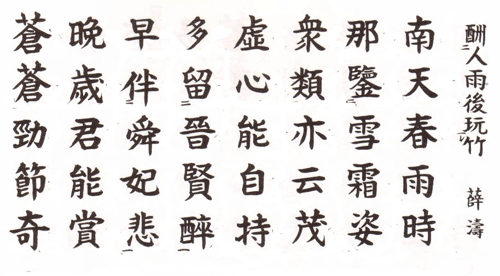 酬人雨後玩竹 薛濤
南天春雨時
那鑒雪霜姿
衆類亦云茂
虛心能自持
多留晉賢醉
早伴舜妃悲
晩歲君能賞
蒼蒼勁節奇